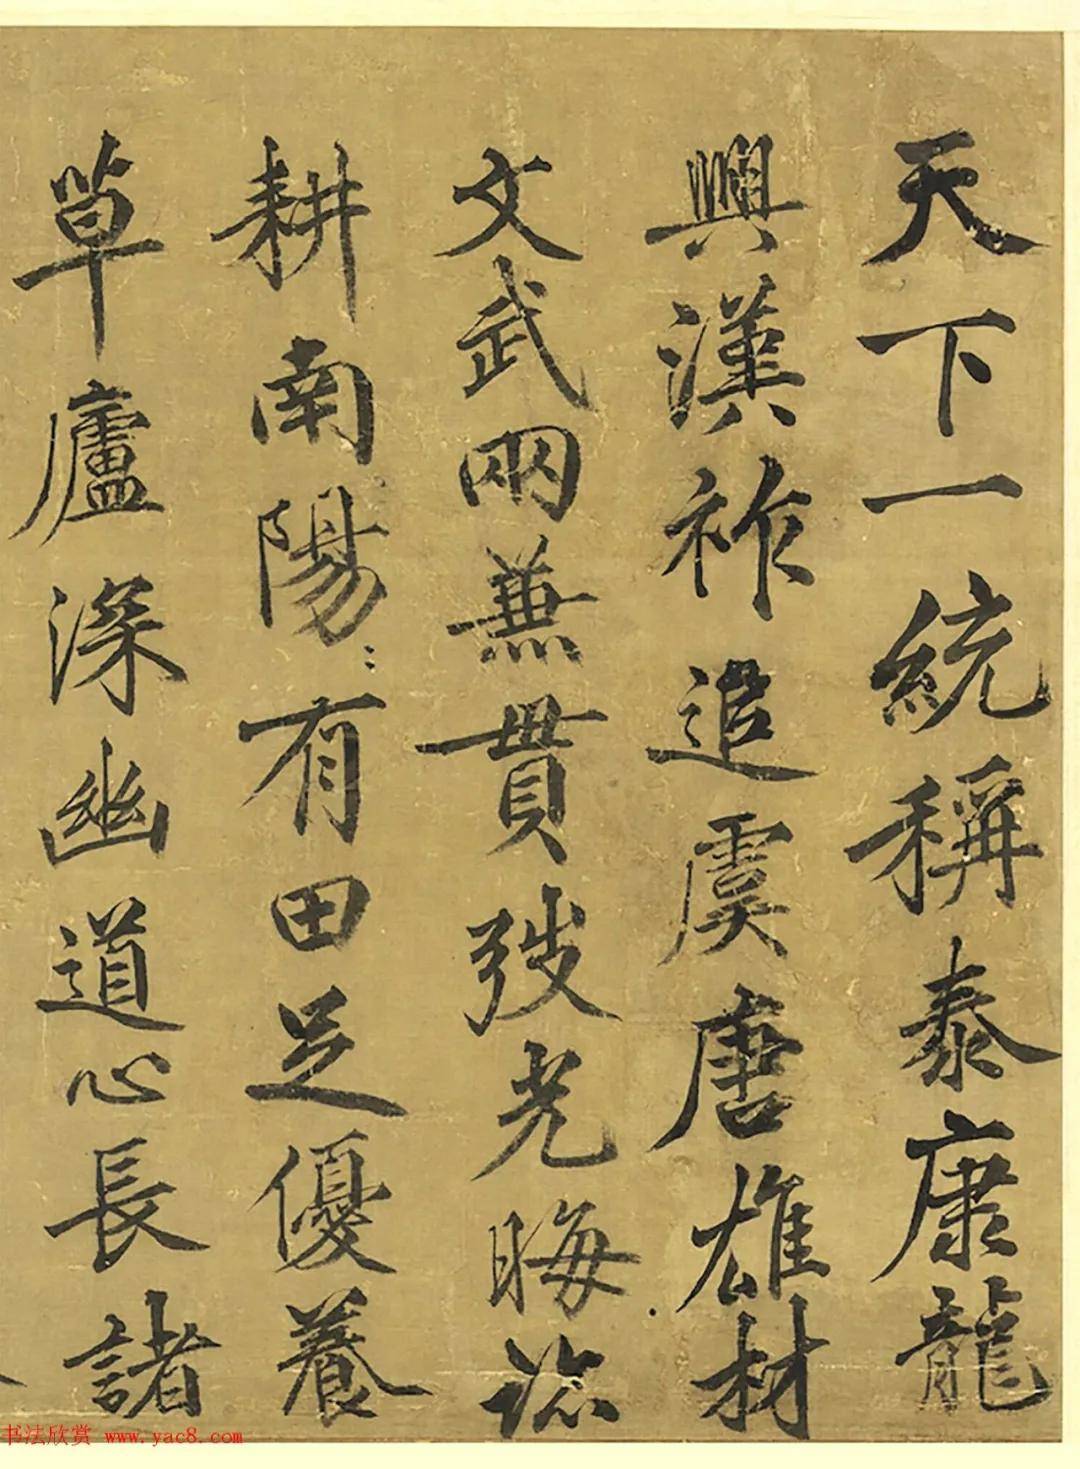 天下一統稱泰康龍
興漢祚追虞唐雄材
文武兩兼貫弢光晦迹
耕南陽〻有田足優養
草廬深幽道心長諸
书法欣赏 www.yac8.com